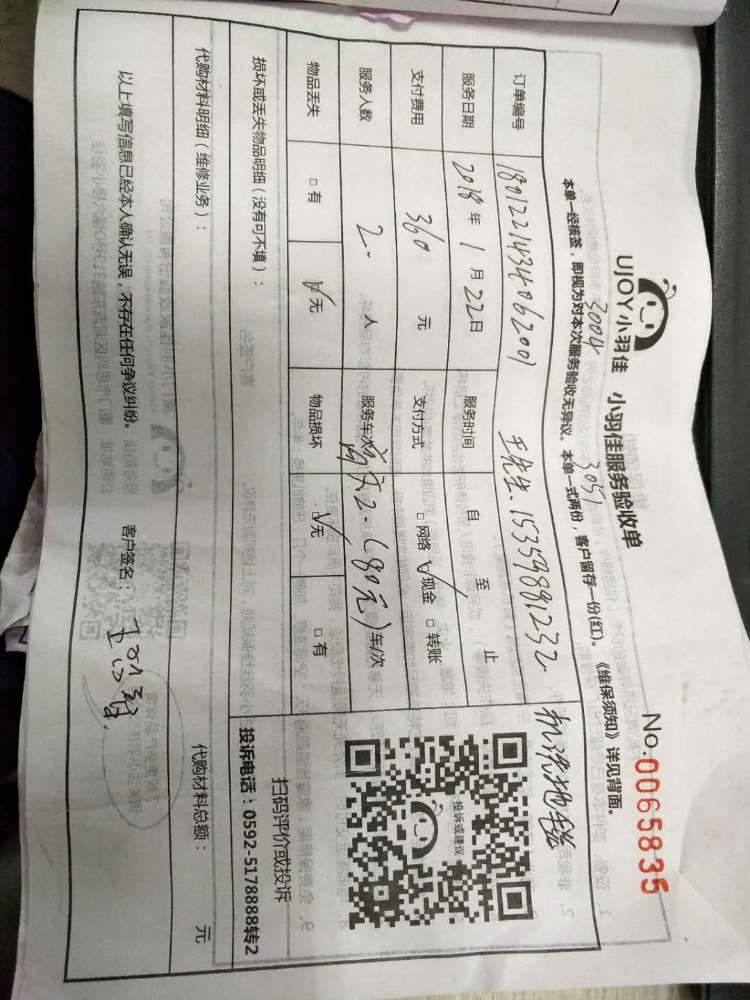 UJOY小羽佳 小羽佳服务验收单
No.0065835
3004 3051
本单一经核签，即视为对本次服务验收无异议。本单一式两份，客户留存一份(红)。《维保须知》详见背面。
订单编号 1801221434062001 王先生.15359891232 机洗地毯
服务日期 2018年1月22日 服务时间 自 至 止
支付费用 360元 支付方式 □网络 ☑现金 □转账
服务人数 2-人 服务车次 2-(80元)车/次
物品丢失 □有 ☑无 物品损坏 ☑无 □有
投诉或建议
扫码评价或投诉
投诉电话：0592-5178888转2
损坏或丢失物品明细（没有可不填）：
代购材料明细（维修业务）： 代购材料总额： 元
以上填写信息已经本人确认无误，不存在任何争议纠纷。 客户签名：